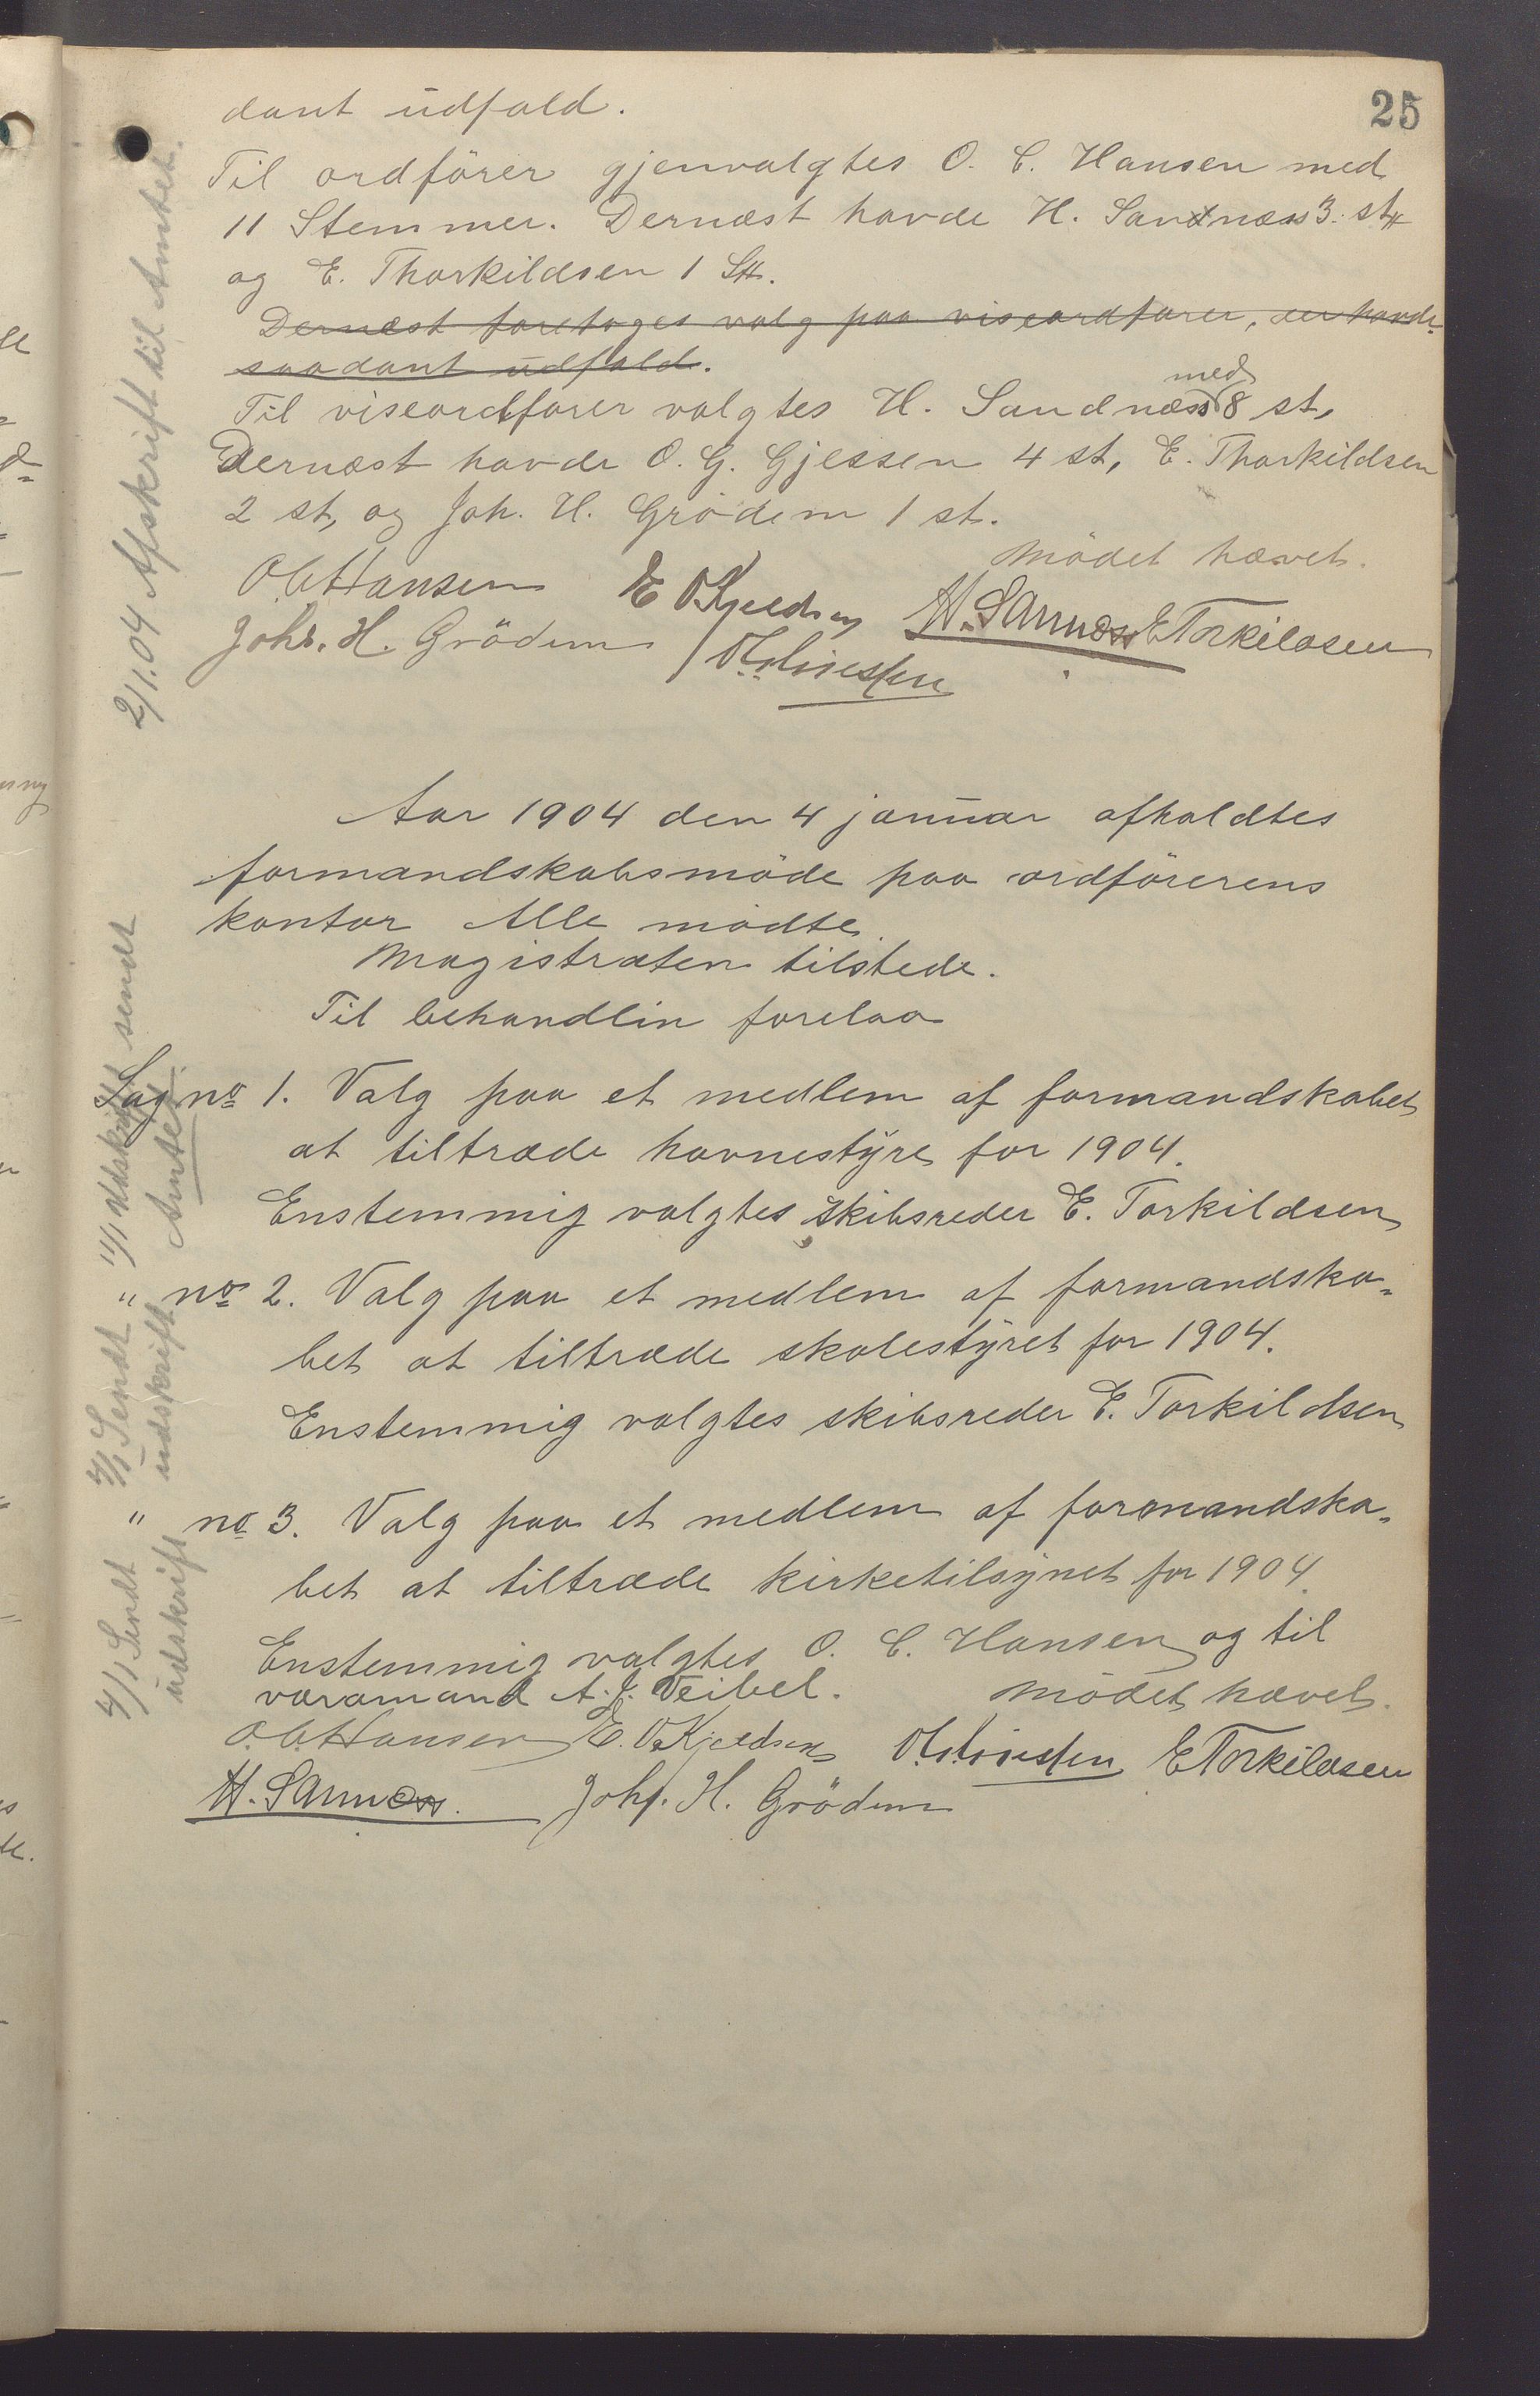 25
dant udfald.
Til ordförer gjenvalgtes O. C. Hansen med
11 Stemmer. Dernæst havde H. Sandnæss 3. st
og E. Thorkildsen 1 St.
Dernæst foretoges valg paa viseordfører, der havde
saadant udfald.
Til viseordfører valgtes H. Sandnæss med 8 st,
Dernæst havde O. G. Gjessen 4 st, E. Thorkildsen
2 st, og Joh. H. Grödem 1 st.
Mödet hævet.
O C Hansen E O Kjeldsen H. Sannæss E Torkildsen
Johs. H. Grödem
2/1.04 Afskrift til Amtet.
Aar 1904 den 4 januar afholdtes
formandskabsmöde paa ordförerens
kontor Alle mödte.
Magistraten tilstede.
Til behandlin forelaa
Sag no 1. Valg paa et medlem af formandskabet
at tiltræde havnestyre for 1904.
Enstemmig valgtes skibsreder E. Torkildsen
11/1 Udskrift sendt
Amtet.
" no 2. Valg paa et medlem af formandska-
bet at tiltræde skolestyret for 1904.
Enstemmig valgtes skibsreder E. Torkildsen
4/1 Sendt
udskrift
" no 3. Valg paa et medlem af formandska-
bet at tiltræde kirketilsynet for 1904.
Enstemmig valgtes O. C. Hansen og til
varamand A. J. Veibel. Mödet hævet.
4/1 Sendt
udskrift
O. C. Hansen E. O. Kjeldsen E Torkildsen
H. Sannæss. Johs. H. Grödem